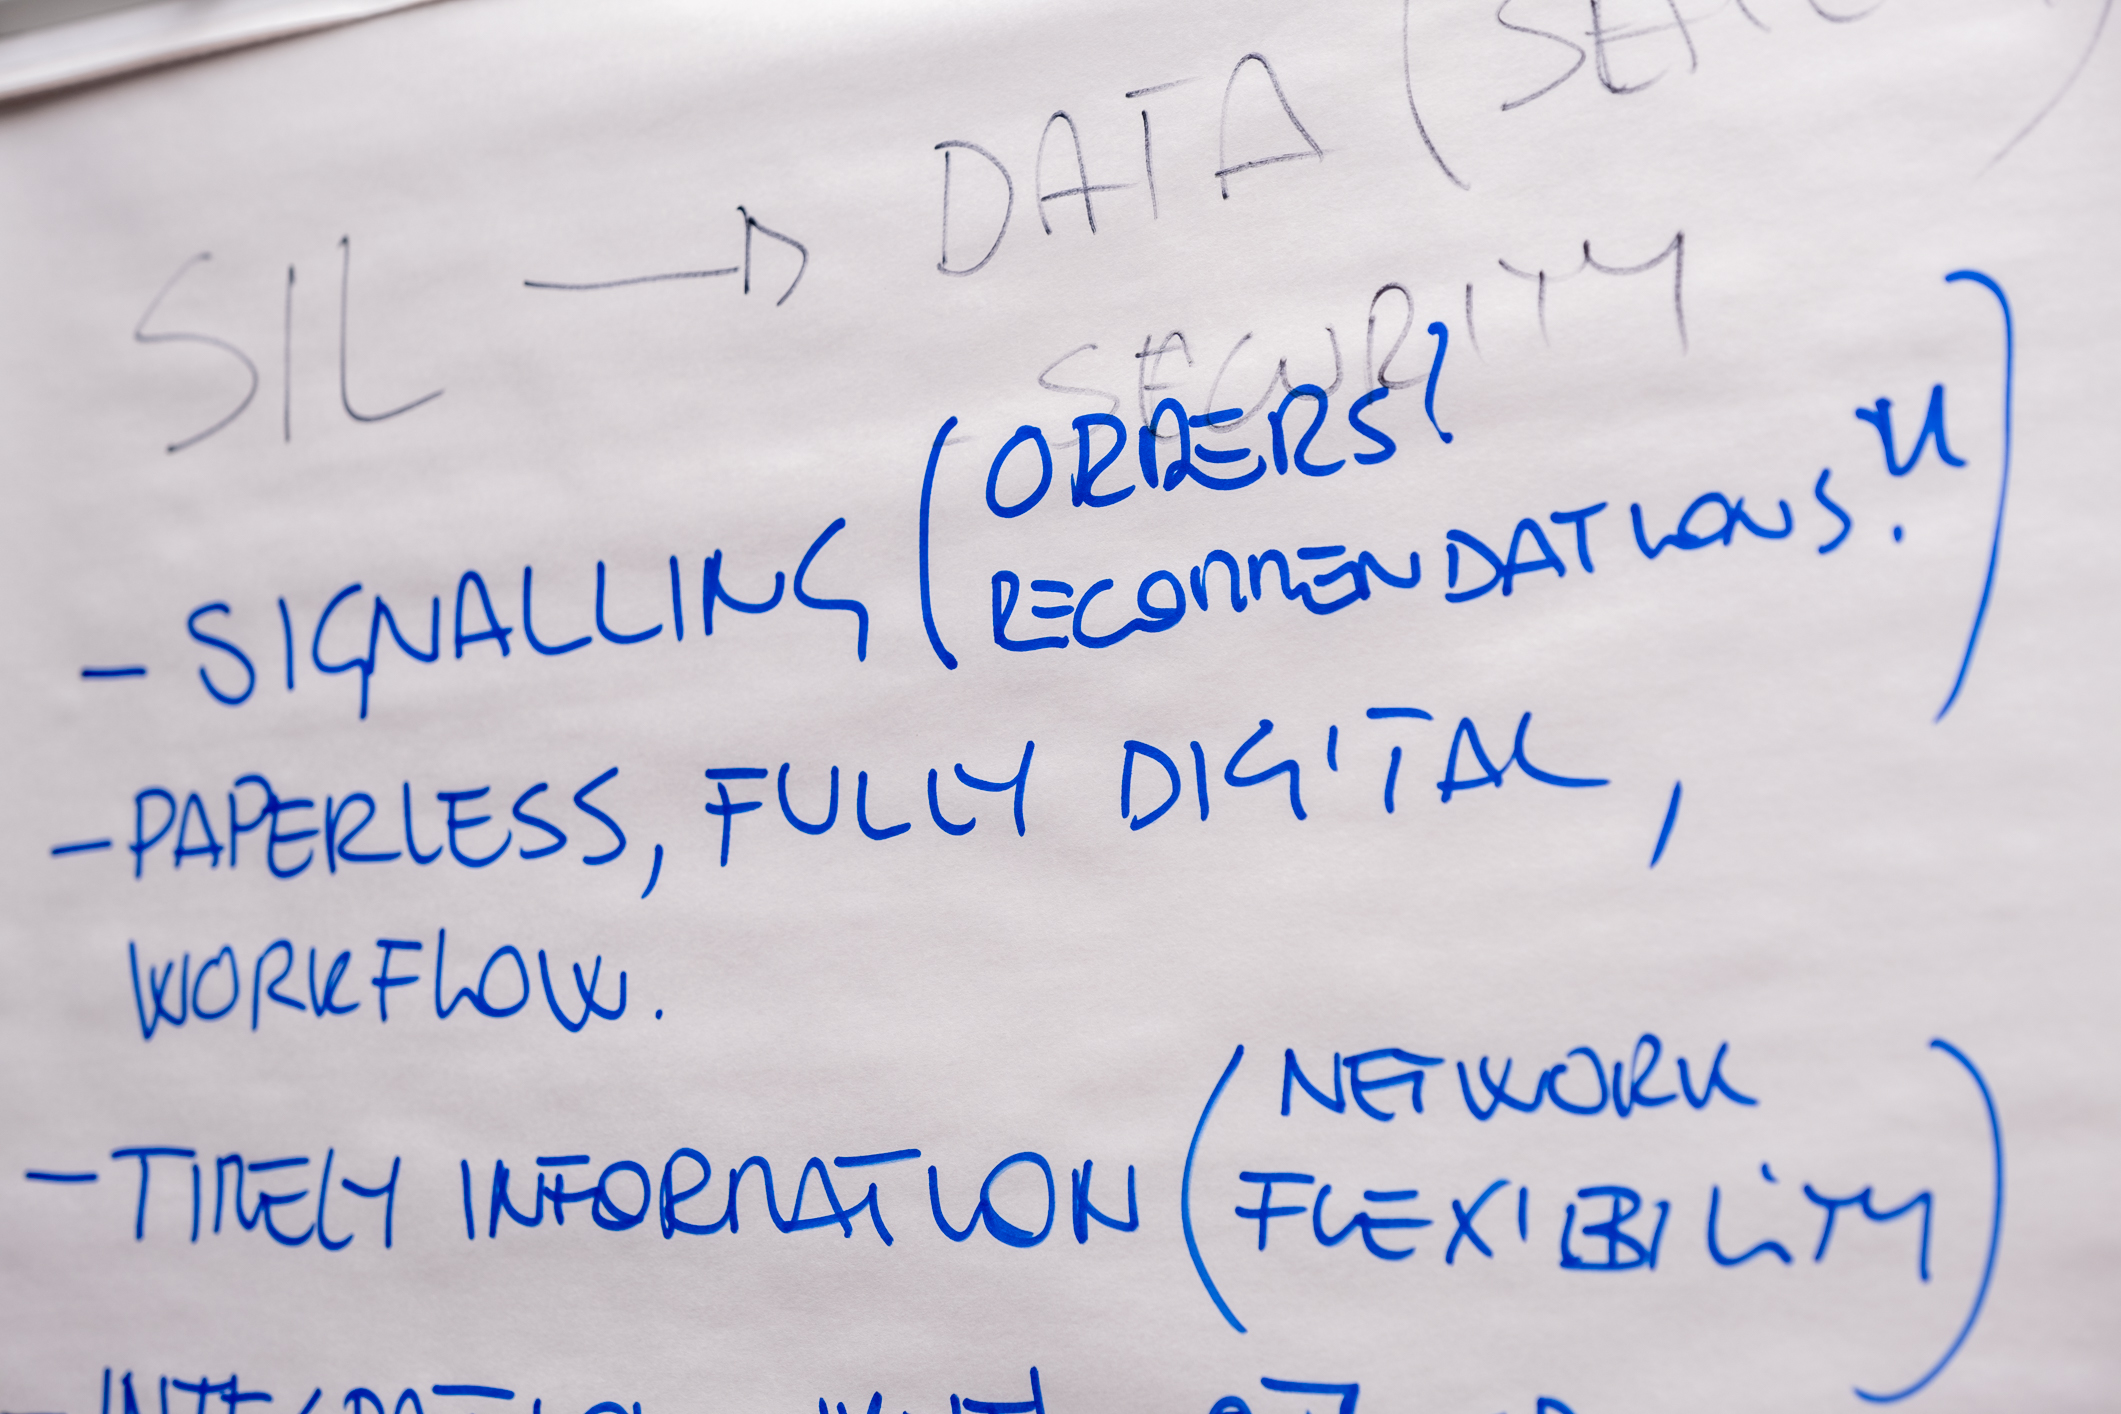 SIL → DATA
SECURITY
- SIGNALLING (ORDERS,
RECOMMENDATIONS.")
- PAPERLESS, FULLY DIGITAL,
WORKFLOW.
- TIMELY INFORMATION (NETWORK
FLEXIBILITY)
- INTEGRATION